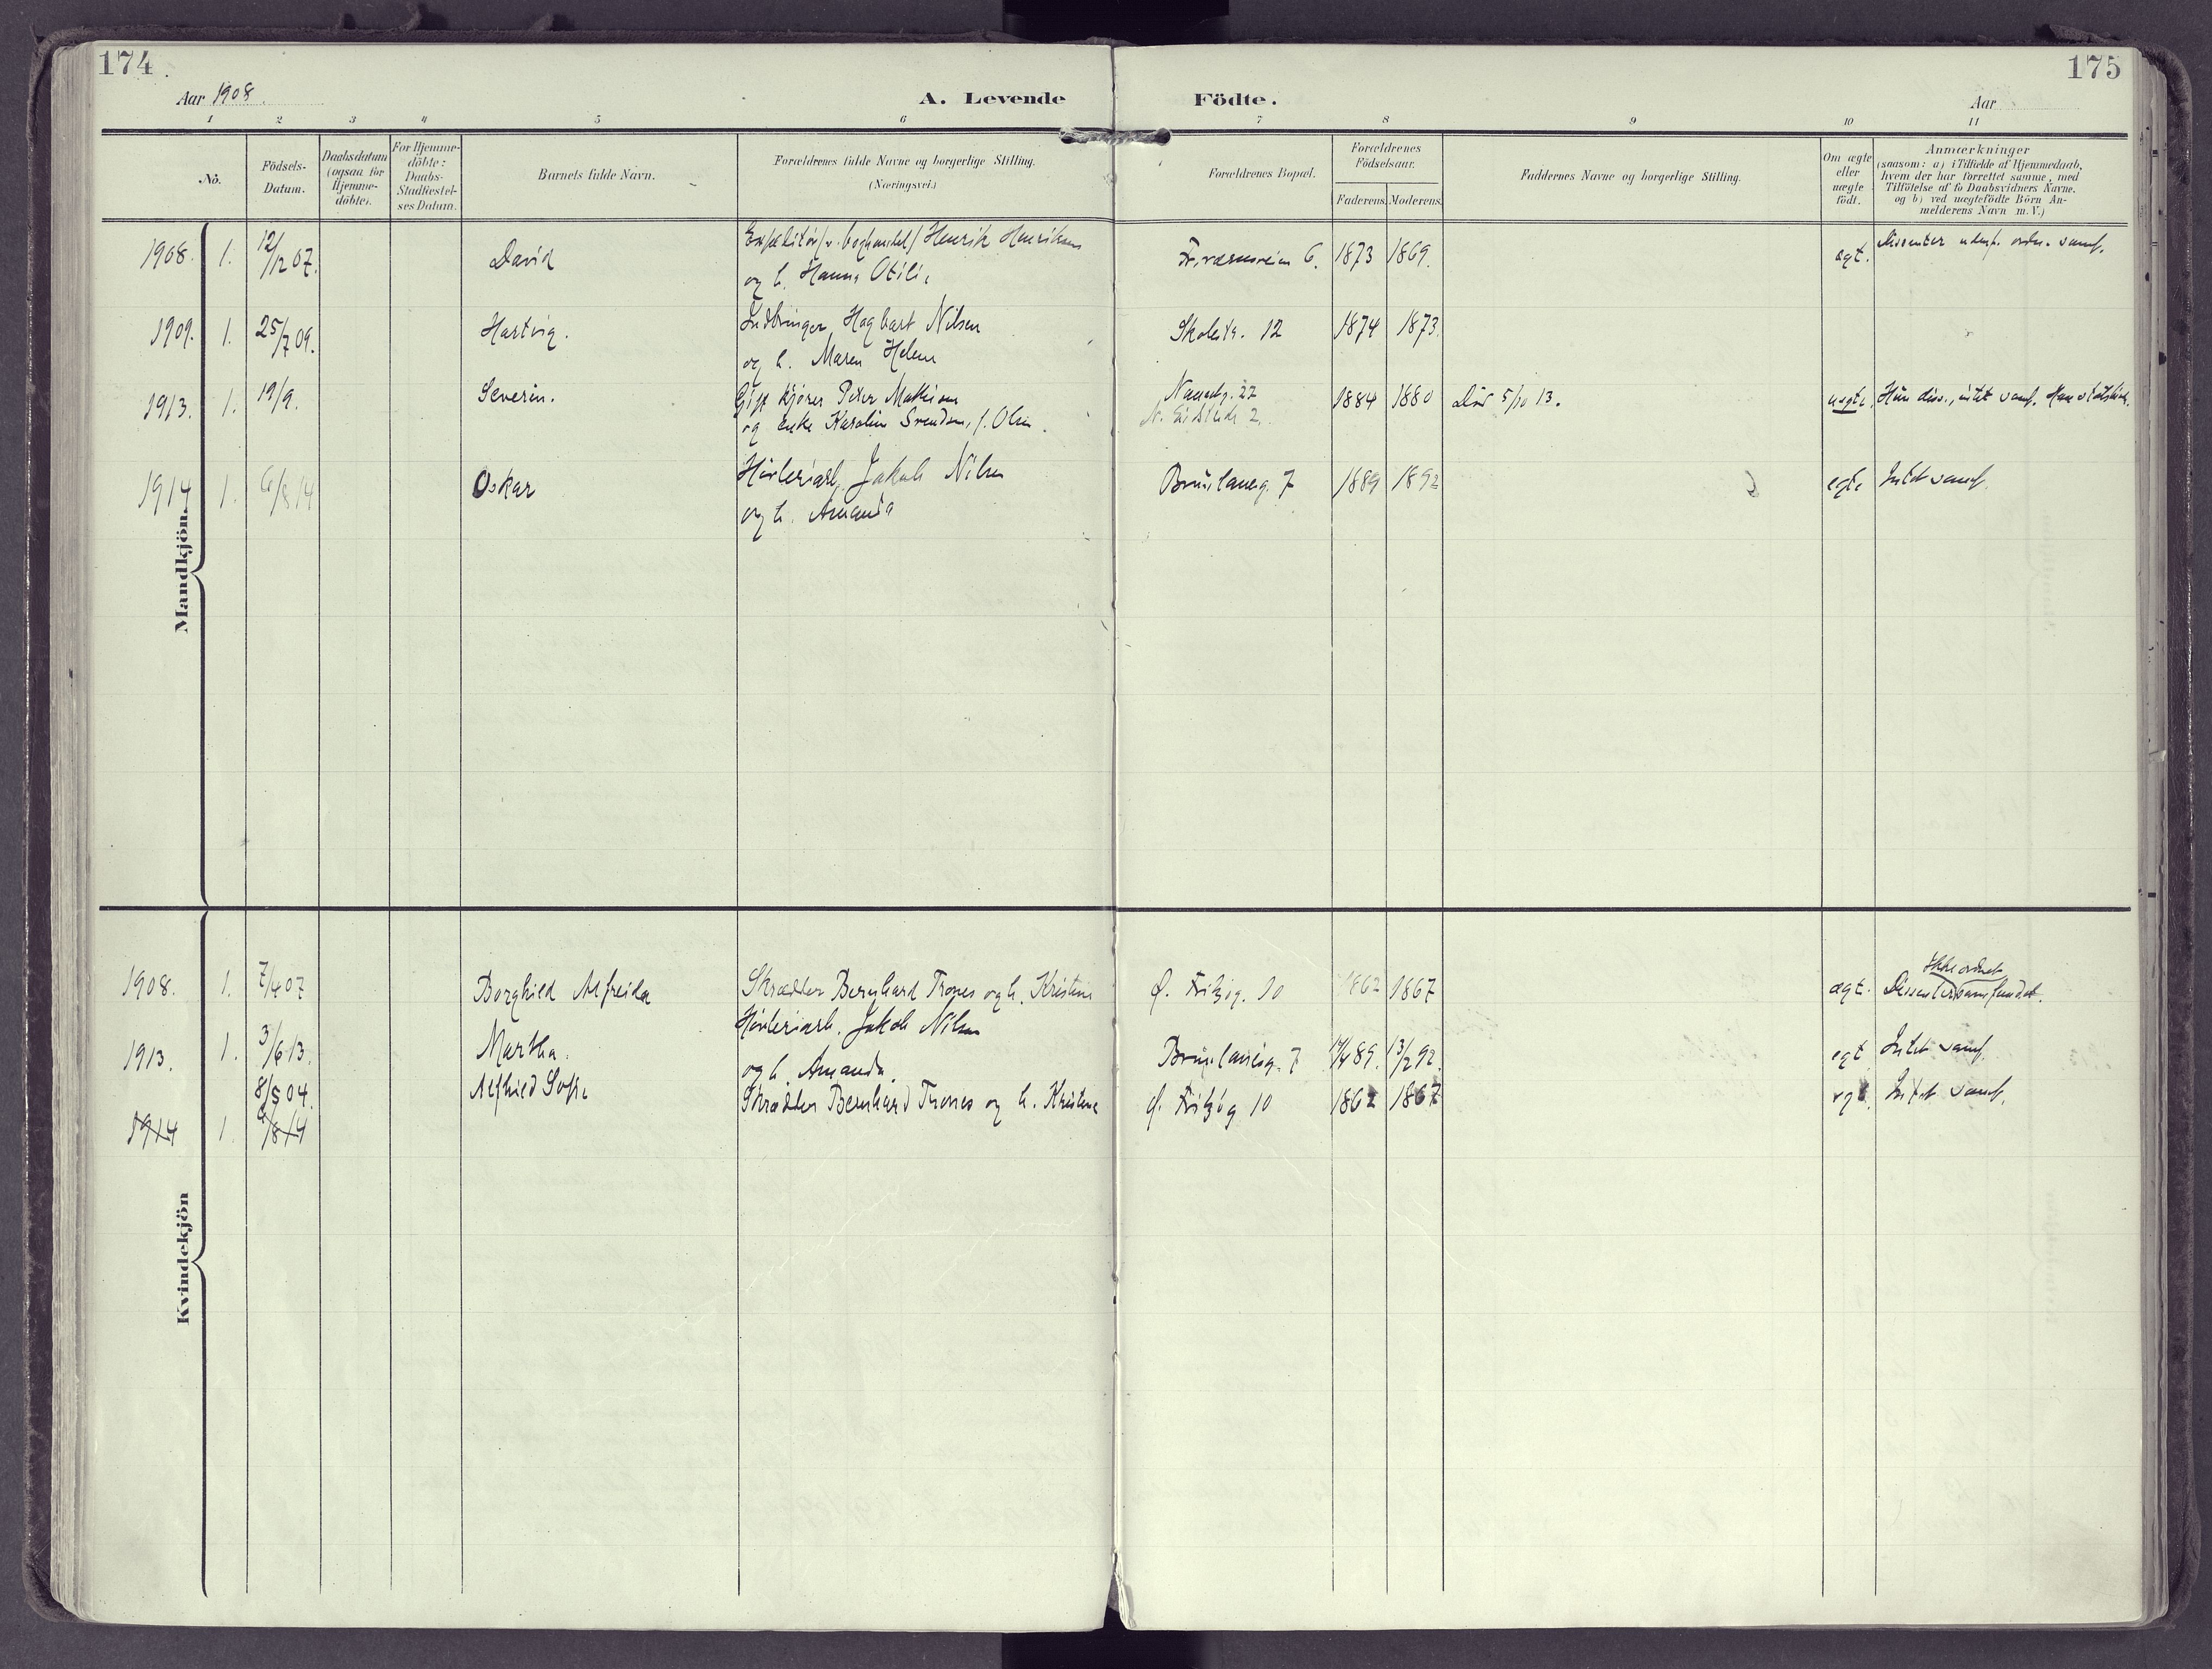 174
175
Aar 1908.
A. Levende Födte.
Aar
1 2 3 4 5 6 7 8 9 10 11
No.
Födsels-
Datum.
Daabsdatum
(ogsaa for
Hjemme-
döbte).
For Hjemme-
döbte:
Daabs-
Stadfæstel-
ses Datum.
Barnets fulde Navn.
Forældrenes fulde Navne og borgerlige Stilling.
(Næringsvei.)
Forældrenes Bopæl.
Forældrenes
Födselsaar.
Faderens. Moderens.
Faddernes Navne og borgerlige Stilling.
Om ægte
eller
uægte
födt.
Anmærkninger
(saasom: a) i Tilfælde af Hjemmedaab,
hvem der har forrettet samme, med
Tilföielse af to Daabsvidners Navne.
og b) ved uægtefödte Börn An-
melderens Navn m. V.)
Mandkjön.
1908. 1. 12/12 07. David Henrik Henriksen 6. 1873 1869. ægt. Dissenter
og h. Hanna Otilie
1909. 1. 25/7 09. Hartvig. Hagbart Nilsen Skolestr. 12 1874 1873.
og h. Maren Helene
1913. 1. 19/9. Severin. Gift kjører Peter Mathisen 22 1884 1880 Død 5/10 13. uegte. Hun diss., intet samf.
og enke Karoline Svendsen, f. Olsen. 2.
1914 1. 6/8 14 Oskar Høvleriarb. Jakob Nilsen Brunlanesg. 7 1889 1892 egte Intet samf.
og h. Amanda
Kvindekjön
1908. 1. 7/4 07 Borghild Alfreida Skrædder Bernhard Trones og h. Kristine Ø. Fritzøg. 10 1862 1867 ægt. Ikke ordnet
Dissentersamfundet.
1913. 1. 3/6 13. Martha. Høvleriarb. Jakob Nilsen
og h. Amanda. Brunlanesg. 7 89. 13/2 92. egt Intet samf.
8/5 04. Alfhild Sofie Skrædder Bernhard Trones og h. Kristine Ø. Fritzøg 10 1862 1867 egt. Intet samf.
1914 1. 6/8 14